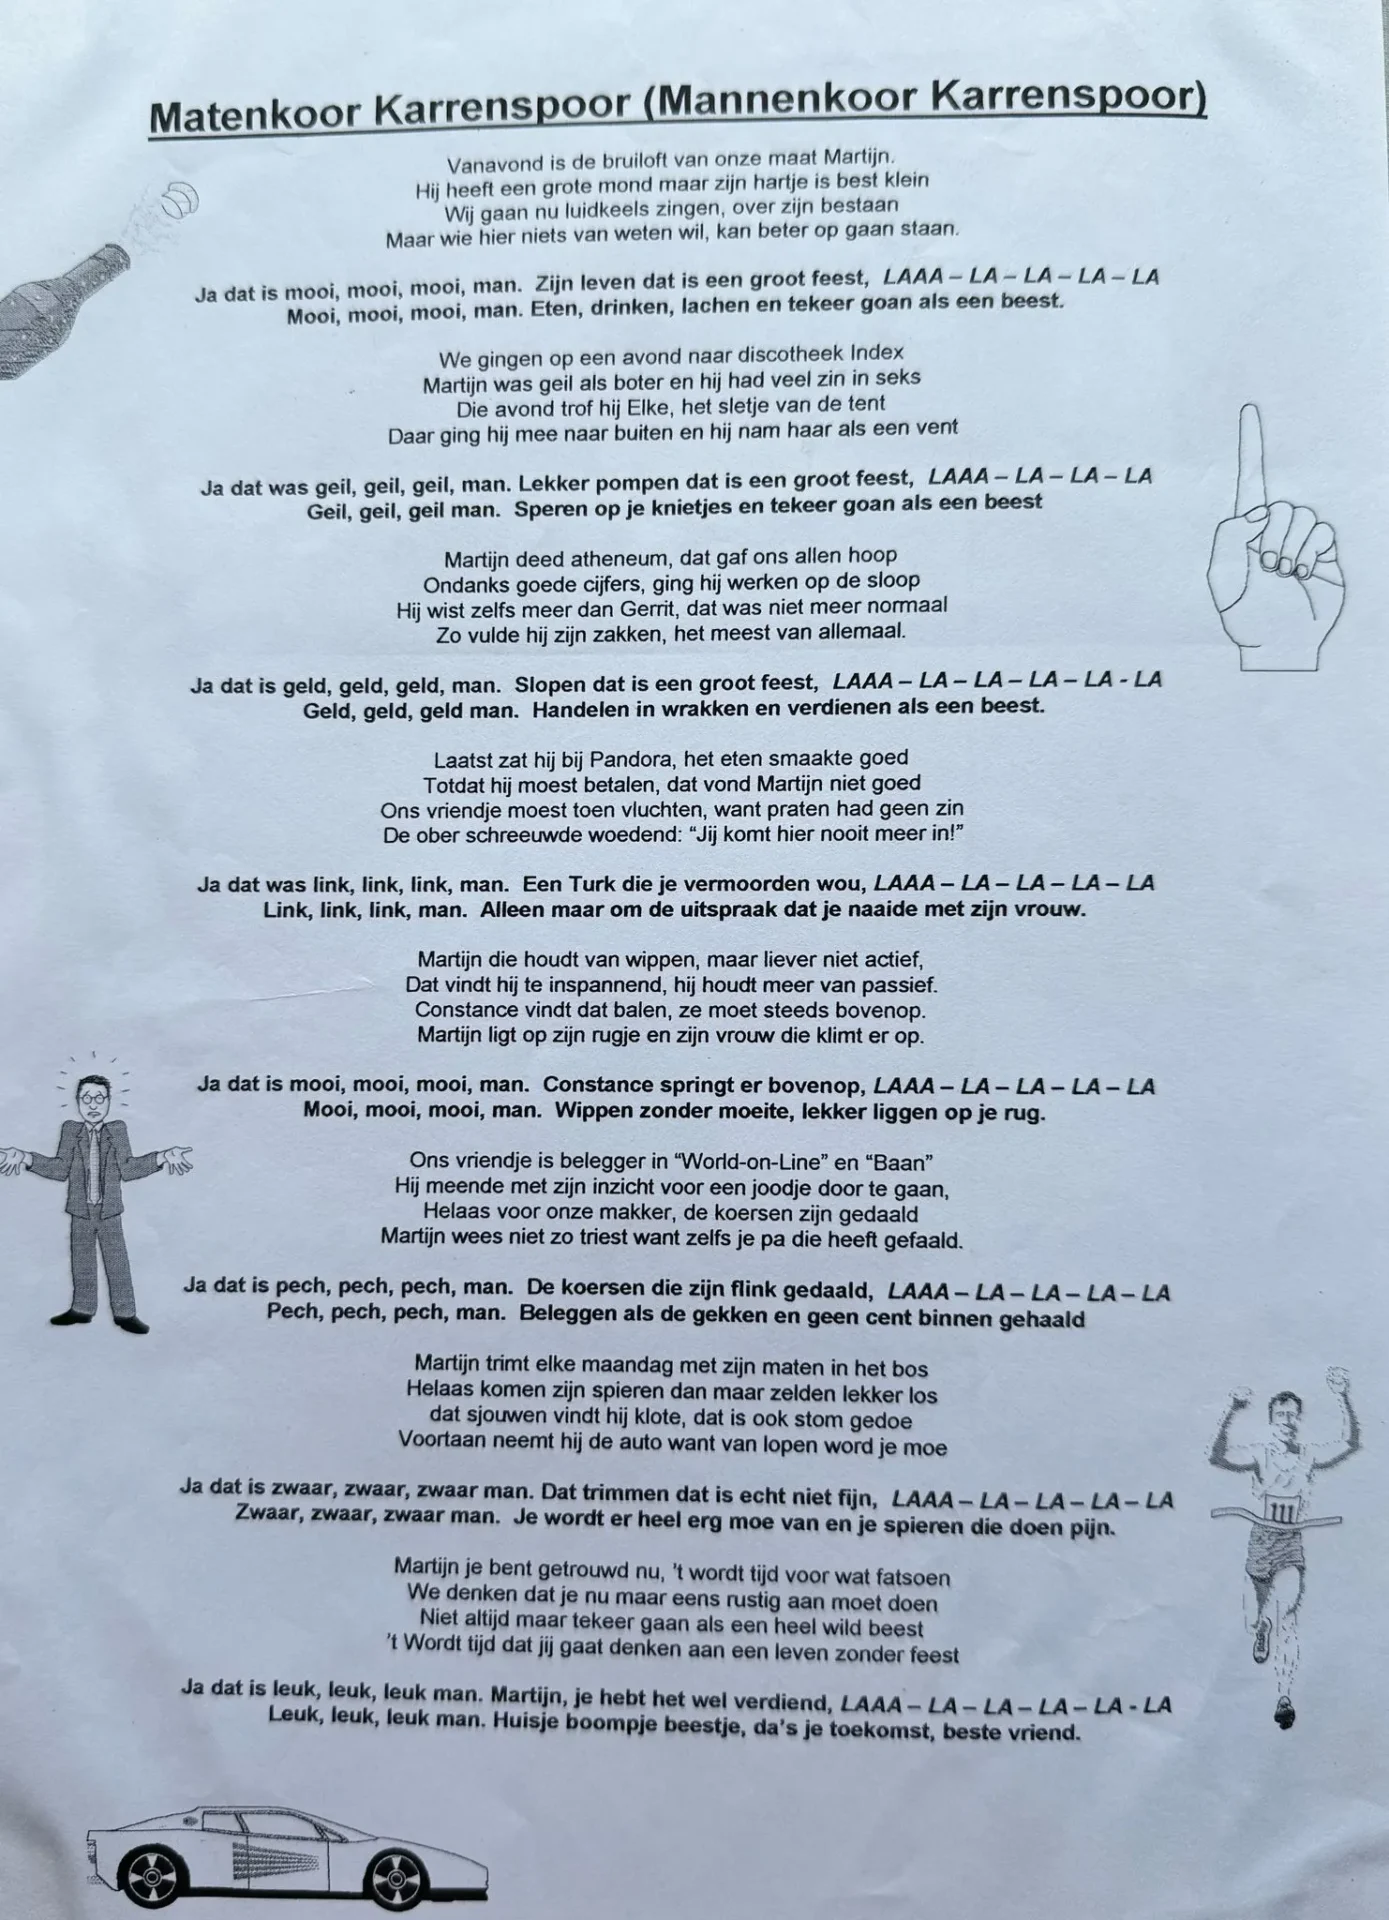 Matenkoor Karrenspoor (Mannenkoor Karrenspoor)
Vanavond is de bruiloft van onze maat Martijn.
Hij heeft een grote mond maar zijn hartje is best klein
Wij gaan nu luidkeels zingen, over zijn bestaan
Maar wie hier niets van weten wil, kan beter op gaan staan.
Ja dat is mooi, mooi, mooi, man. Zijn leven dat is een groot feest, LAAA – LA – LA – LA – LA
Mooi, mooi, mooi, man. Eten, drinken, lachen en tekeer goan als een beest.
We gingen op een avond naar discotheek Index
Martijn was geil als boter en hij had veel zin in seks
Die avond trof hij Elke, het sletje van de tent
Daar ging hij mee naar buiten en hij nam haar als een vent
Ja dat was geil, geil, geil, man. Lekker pompen dat is een groot feest, LAAA – LA – LA – LA
Geil, geil, geil man. Speren op je knietjes en tekeer goan als een beest
Martijn deed atheneum, dat gaf ons allen hoop
Ondanks goede cijfers, ging hij werken op de sloop
Hij wist zelfs meer dan Gerrit, dat was niet meer normaal
Zo vulde hij zijn zakken, het meest van allemaal.
Ja dat is geld, geld, geld, man. Slopen dat is een groot feest, LAAA – LA – LA – LA – LA - LA
Geld, geld, geld man. Handelen in wrakken en verdienen als een beest.
Laatst zat hij bij Pandora, het eten smaakte goed
Totdat hij moest betalen, dat vond Martijn niet goed
Ons vriendje moest toen vluchten, want praten had geen zin
De ober schreeuwde woedend: “Jij komt hier nooit meer in!”
Ja dat was link, link, link, man. Een Turk die je vermoorden wou, LAAA – LA – LA – LA – LA
Link, link, link, man. Alleen maar om de uitspraak dat je naaide met zijn vrouw.
Martijn die houdt van wippen, maar liever niet actief,
Dat vindt hij te inspannend, hij houdt meer van passief.
Constance vindt dat balen, ze moet steeds bovenop.
Martijn ligt op zijn rugje en zijn vrouw die klimt er op.
Ja dat is mooi, mooi, mooi, man. Constance springt er bovenop, LAAA – LA – LA – LA – LA
Mooi, mooi, mooi, man. Wippen zonder moeite, lekker liggen op je rug.
Ons vriendje is belegger in “World-on-Line” en “Baan”
Hij meende met zijn inzicht voor een joodje door te gaan,
Helaas voor onze makker, de koersen zijn gedaald
Martijn wees niet zo triest want zelfs je pa die heeft gefaald.
Ja dat is pech, pech, pech, man. De koersen die zijn flink gedaald, LAAA – LA – LA – LA – LA
Pech, pech, pech, man. Beleggen als de gekken en geen cent binnen gehaald
Martijn trimt elke maandag met zijn maten in het bos
Helaas komen zijn spieren dan maar zelden lekker los
dat sjouwen vindt hij klote, dat is ook stom gedoe
Voortaan neemt hij de auto want van lopen word je moe
Ja dat is zwaar, zwaar, zwaar man. Dat trimmen dat is echt niet fijn, LAAA – LA – LA – LA – LA
Zwaar, zwaar, zwaar man. Je wordt er heel erg moe van en je spieren die doen pijn.
Martijn je bent getrouwd nu, 't wordt tijd voor wat fatsoen
We denken dat je nu maar eens rustig aan moet doen
Niet altijd maar tekeer gaan als een heel wild beest
't Wordt tijd dat jij gaat denken aan een leven zonder feest
Ja dat is leuk, leuk, leuk man. Martijn, je hebt het wel verdiend, LAAA – LA – LA – LA – LA - LA
Leuk, leuk, leuk man. Huisje boompje beestje, da's je toekomst, beste vriend.